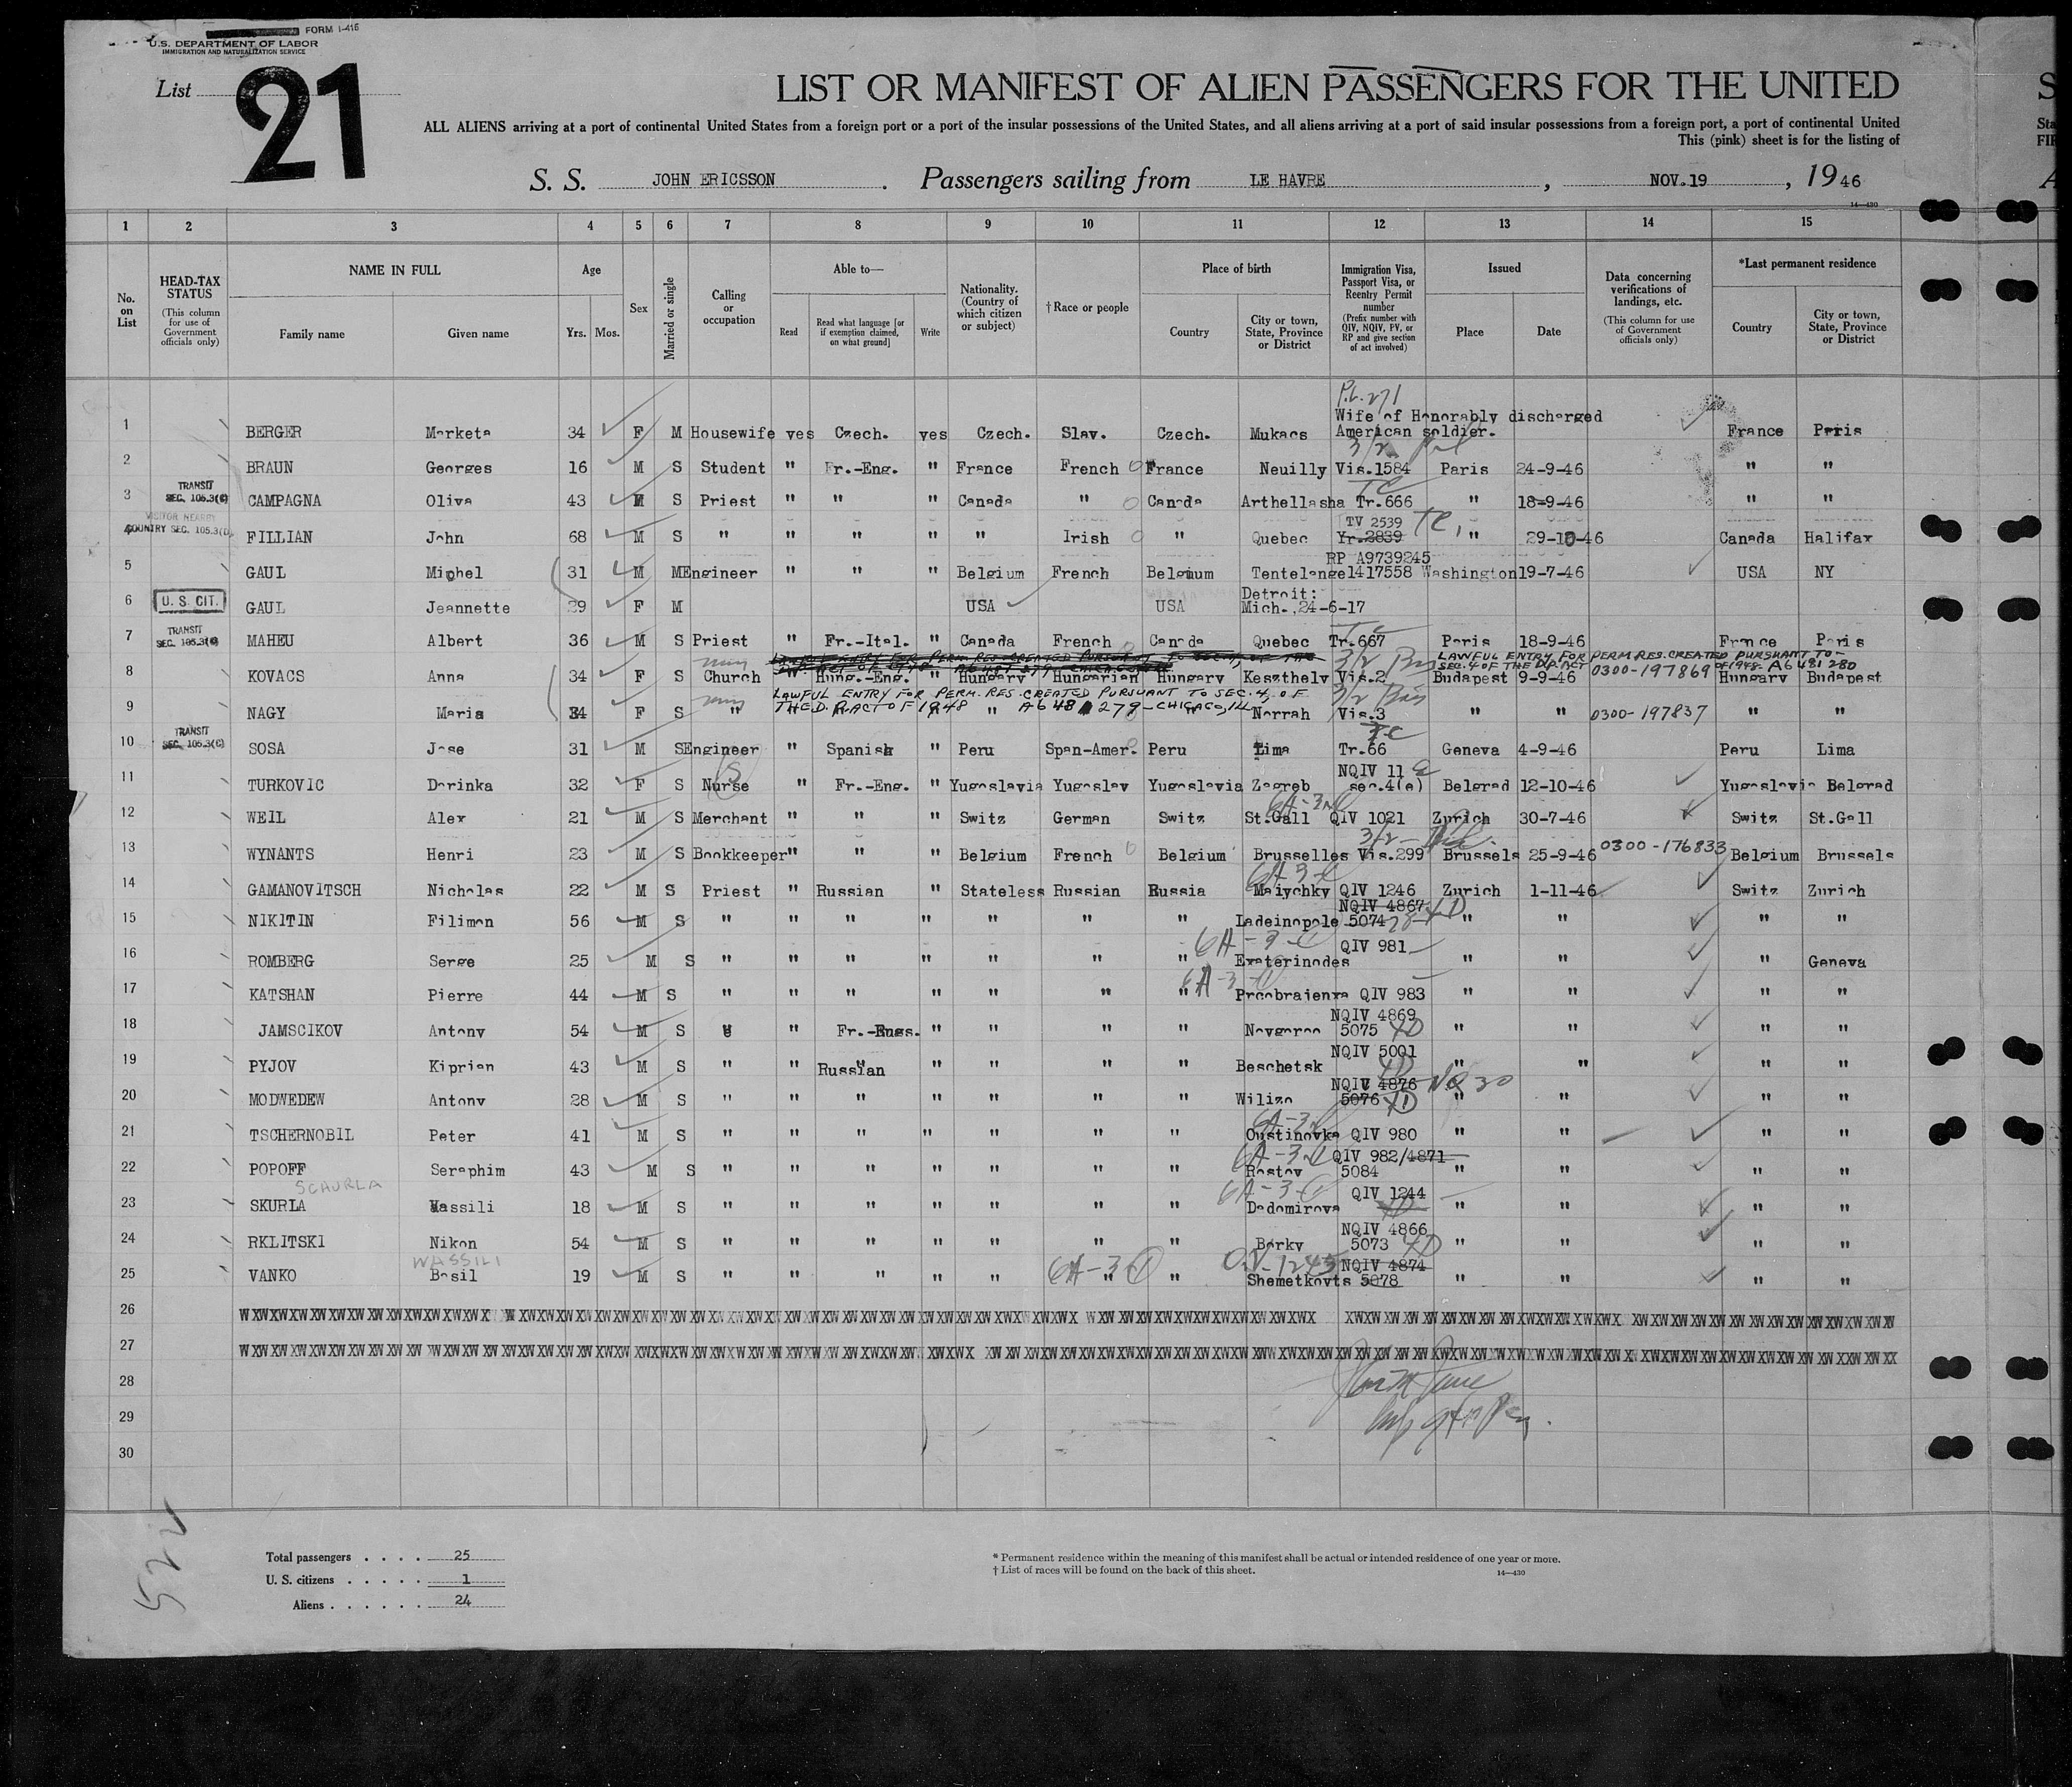 FORM I-415
U.S. DEPARTMENT OF LABOR
IMMIGRATION AND NATURALIZATION SERVICE
List 21
LIST OR MANIFEST OF ALIEN PASSENGERS FOR THE UNITED
S
ALL ALIENS arriving at a port of continental United States from a foreign port or a port of the insular possessions of the United States, and all aliens arriving at a port of said insular possessions from a foreign port, a port of continental United
Sta
This (pink) sheet is for the listing of
S. S. JOHN ERICSSON . Passengers sailing from LE HAVRE , NOV.19 , 1946
14—430
1 2 3 4 5 6 7 8 9 10 11 12 13 14 15
No. on List
HEAD-TAX STATUS
(This column for use of Government officials only)
NAME IN FULL
Family name Given name
Age
Yrs. Mos.
Sex
Married or single
Calling or occupation
Able to—
Read
Read what language [or if exemption claimed, on what ground]
Write
Nationality. (Country of which citizen or subject)
† Race or people
Place of birth
Country
City or town, State, Province or District
Immigration Visa, Passport Visa, or Reentry Permit number
(Prefix number with QIV, NQIV, PV, or RP and give section of act involved)
Issued
Place Date
Data concerning verifications of landings, etc.
(This column for use of Government officials only)
*Last permanent residence
Country
City or town, State, Province or District
P.L. 271
Wife of Honorably discharged
1 BERGER Marketa 34 F M Housewife yes Czech. yes Czech. Slav. Czech. Mukacs American soldier. France Paris
2 BRAUN Georges 16 M S Student " Fr.-Eng. " France French France Neuilly Vis.1584 Paris 24-9-46 " "
TRANSIT
SEC. 105.3(C)
3 CAMPAGNA Oliva 43 M S Priest " " " Canada " Canada Arthellasha Tr.666 " 18-9-46 " "
VISITOR NEARBY
COUNTRY SEC. 105.3(D)
TV 2539
4 FILLIAN John 68 M S " " " " " Irish " Quebec Yr.2839 " 29-10-46 Canada Halifax
RP A9739245
5 GAUL Michel 31 M M Engineer " " " Belgium French Belgium Tentelange 1417558 Washington 19-7-46 USA NY
U. S. CIT.
Detroit:
6 GAUL Jeannette 29 F M USA USA Mich. 24-6-17
TRANSIT
SEC. 105.3(C)
7 MAHEU Albert 36 M S Priest " Fr.-Ital. " Canada French Canada Quebec Tr.667 Paris 18-9-46 France Paris
LAWFUL ENTRY FOR PERM. RES. CREATED PURSUANT TO
SEC. 4 OF THE D.P. ACT OF 1948- A6 481 280
8 KOVACS Anna 34 F S Church " Hung.-Eng. " Hungary Hungarian Hungary Keszthely Vis.2 Budapest 9-9-46 0300-197869 Hungary Budapest
LAWFUL ENTRY FOR PERM. RES. CREATED PURSUANT TO SEC. 4, OF
THE D.P. ACT OF 1948 A6 481 279 - CHICAGO, ILL
9 NAGY Maria 34 F S " " " " " " " Norrah Vis.3 " " 0300-197837 " "
TRANSIT
SEC. 105.3(C)
10 SOSA Jose 31 M S Engineer " Spanish " Peru Span-Amer. Peru Lima Tr.66 Geneva 4-9-46 Peru Lima
NQIV 11
11 TURKOVIC Darinka 32 F S Nurse " Fr.-Eng. " Yugoslavia Yugoslav Yugoslavia Zagreb sec.4(e) Belgrad 12-10-46 Yugoslavia Belgrad
6A-3
12 WEIL Alex 21 M S Merchant " " " Switz German Switz St.Gall QIV 1021 Zurich 30-7-46 Switz St.Gall
13 WYNANTS Henri 23 M S Bookkeeper " " " Belgium French Belgium Brusselles Vis.299 Brussels 25-9-46 0300-176833 Belgium Brussels
6A-3
14 GAMANOVITSCH Nicholas 22 M S Priest " Russian " Stateless Russian Russia Maiychky QIV 1246 Zurich 1-11-46 Switz Zurich
NQIV 4867
15 NIKITIN Filimon 56 M S " " " " " " " Ladeinopole 5074 " " " "
6A-3 QIV 981
16 ROMBERG Serge 25 M S " " " " " " " Exaterinodes " " " Geneva
6A-3
17 KATSHAN Pierre 44 M S " " " " " " " Prcobrajenxa QIV 983 " " " "
NQIV 4869
18 JAMSCIKOV Antony 54 M S " " Fr.-Russ. " " " " Novgoroo 5075 " " " "
NQIV 5001
19 PYJOV Kiprian 43 M S " " Russian " " " " Beschetsk " " " "
NQIV 4876 NQ 30
20 MODWEDEW Antony 28 M S " " " " " " " Wilizo 5076 " " " "
6A-3
21 TSCHERNOBIL Peter 41 M S " " " " " " " Oustinovka QIV 980 " " " "
6A-3 QIV 982/4871
22 POPOFF Seraphim 43 M S " " " " " " " Rostov 5084 " " " "
SCAURLA
6A-3 QIV 1244
23 SKURLA Vassili 18 M S " " " " " " " Dadomirova " " " "
NQIV 4866
24 RKLITSKI Nikon 54 M S " " " " " " " Borky 5073 " " " "
WASSILI
6A-3 Q.V-1245 NQIV 4874
25 VANKO Basil 19 M S " " " " " " " Shemetkovts 5078 " " " "
26
27
28
29
30
522
Total passengers . . . . 25
U. S. citizens . . . . . 1
Aliens . . . . . . 24
* Permanent residence within the meaning of this manifest shall be actual or intended residence of one year or more.
† List of races will be found on the back of this sheet.
14—430